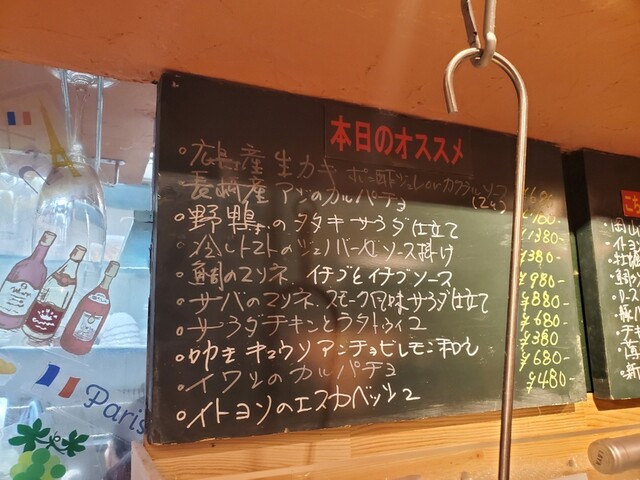 本日のオススメ
広島産 生カキ ポン酢ジュレ or カクテルソース
(2コ)
長崎産 アジのカルパチョ
野鴨のタタキ サラダ仕立て ¥1380-
冷しトマトのジェノバーゼソース掛け ¥380-
鯛のマリネ イチゴとイチゴソース ¥980-
サバのマリネ スモーク風味 サラダ仕立て ¥880-
サラダチキンとラタトゥイユ ¥680-
叩きキュウリ アンチョビレモン和え ¥380-
イワシのカルパチョ ¥680-
イトヨリのエスカベッシュ ¥480-
Paris
岡山
イトヨ